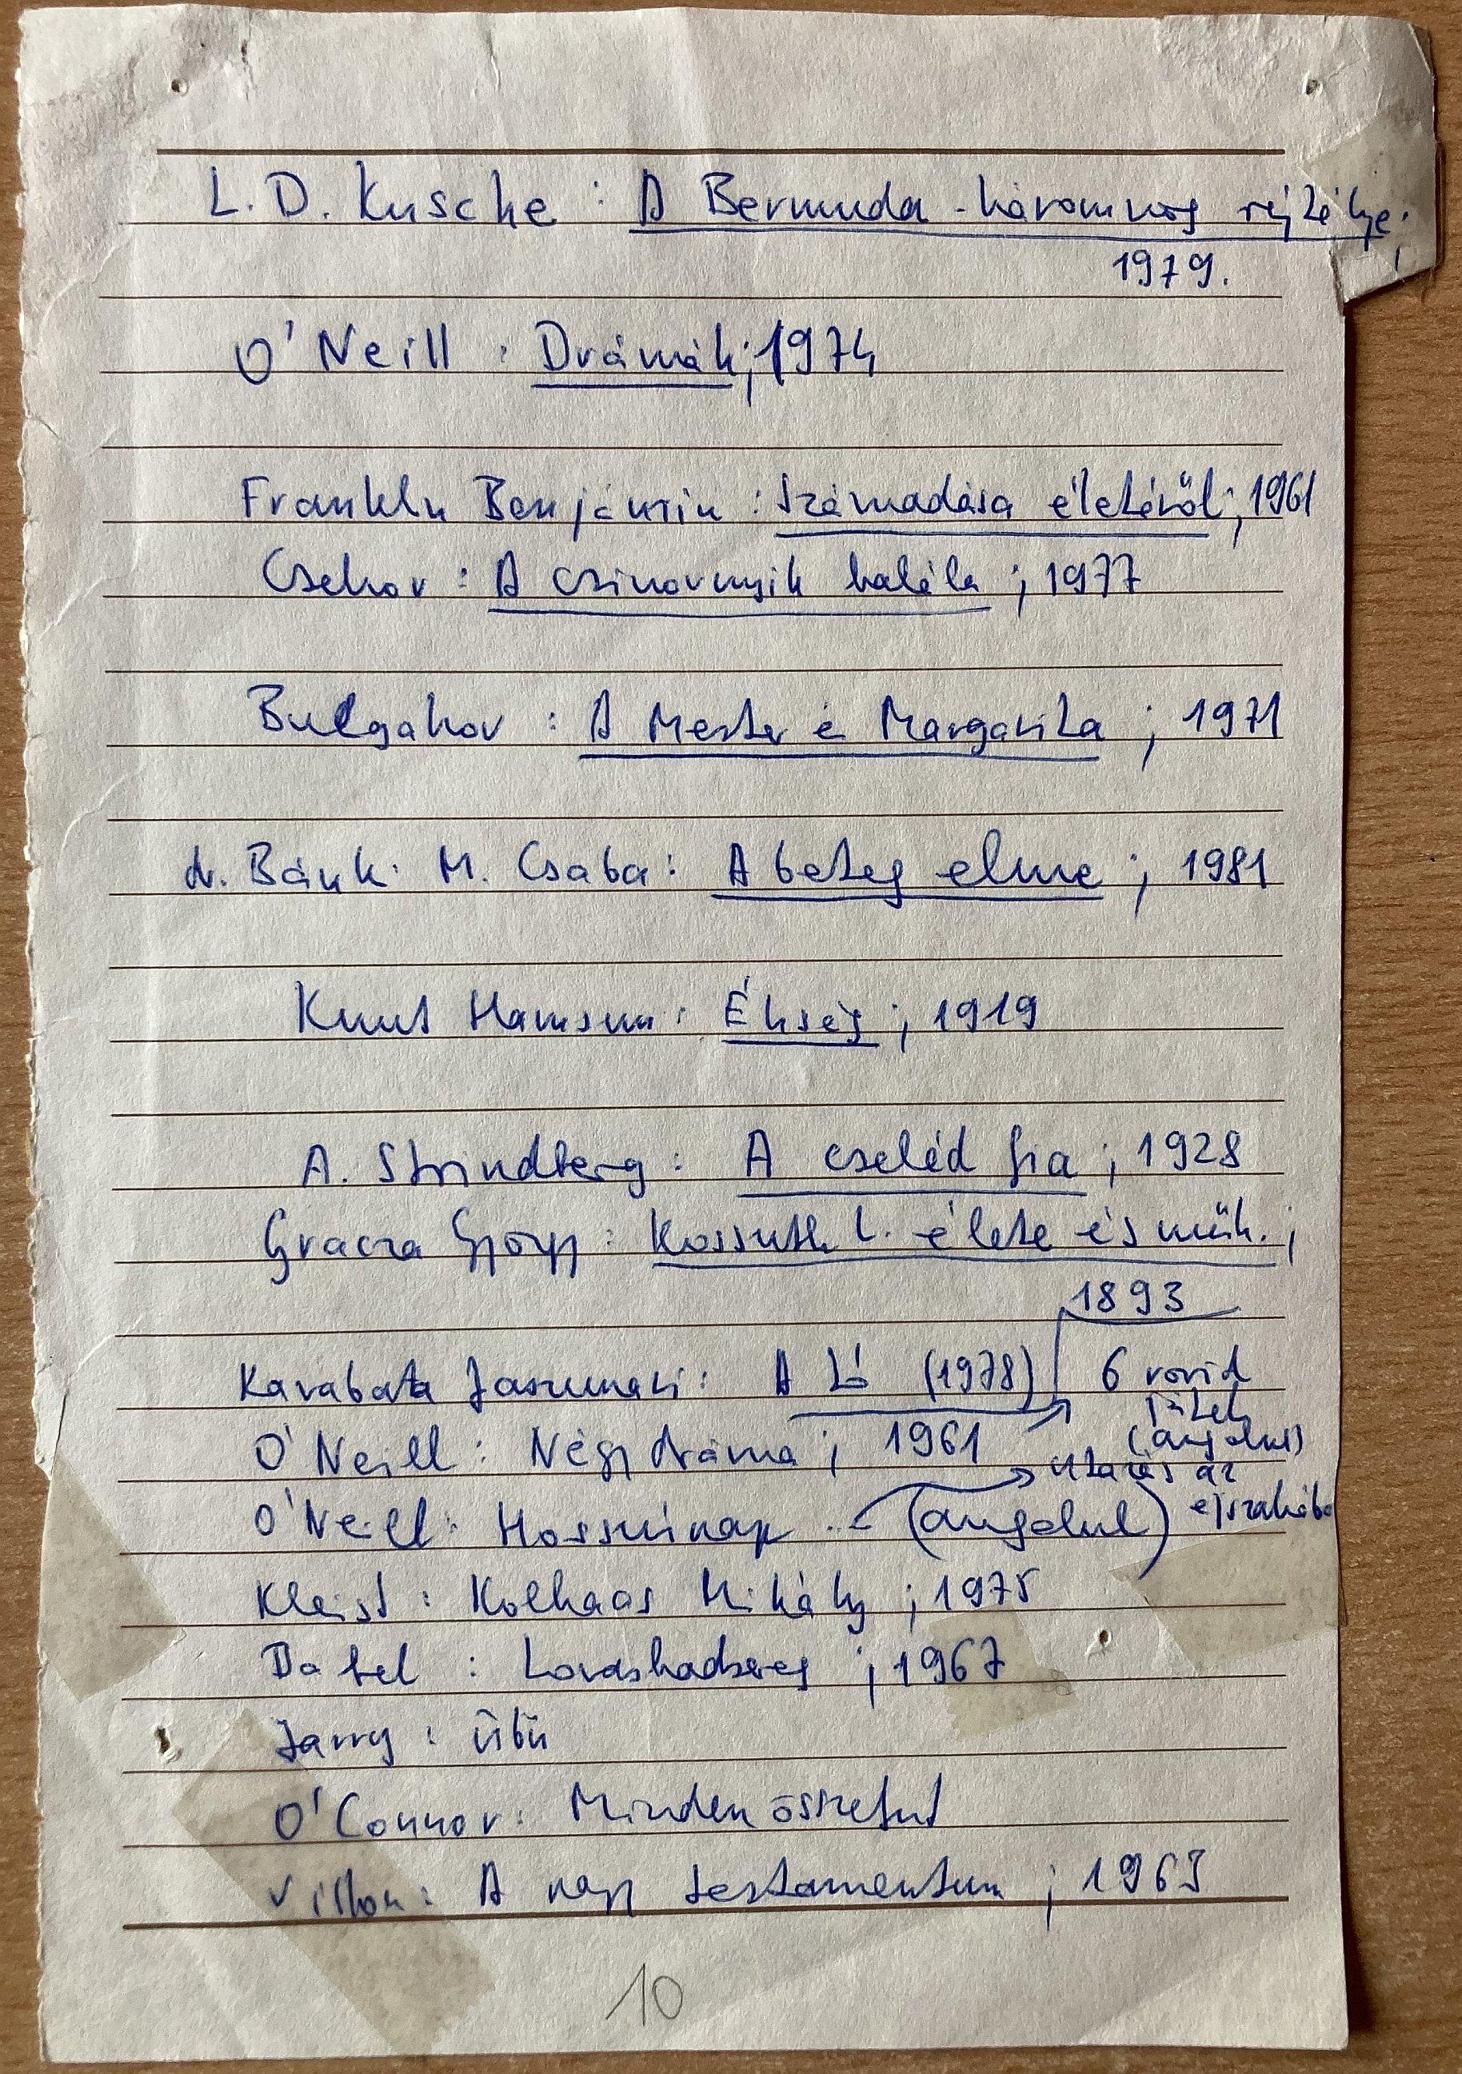 L. D. Kusche : A Bermuda-háromszög rejtélye;
1979.
O'Neill : Drámák; 1974
Franklin Benjámin : Számadása életéről; 1961
Csehov : A csinovnyik halála ; 1977
Bulgakov : A Mester é Margarita ; 1971
dr. Bánki M. Csaba : A beteg elme ; 1981
Knut Hamsun : Éhség ; 1919
A. Strindberg : A cseléd fia ; 1928
Gracza György : Kossuth L. élete és műk. ;
1893
Kavabata Jaszunari : A tó (1978) 6 rövid
játék
O'Neill : Négy dráma ; 1961 (angolul)
utazás az
O'Neill : Hosszú nap (angolul) éjszakába
Kleist : Kolhaas Mihály ; 1975
Babel : Lovashadsereg ; 1967
Jarry : Übü
O'Connor : Minden összefut
Villon : A nagy testamentum ; 1963
10